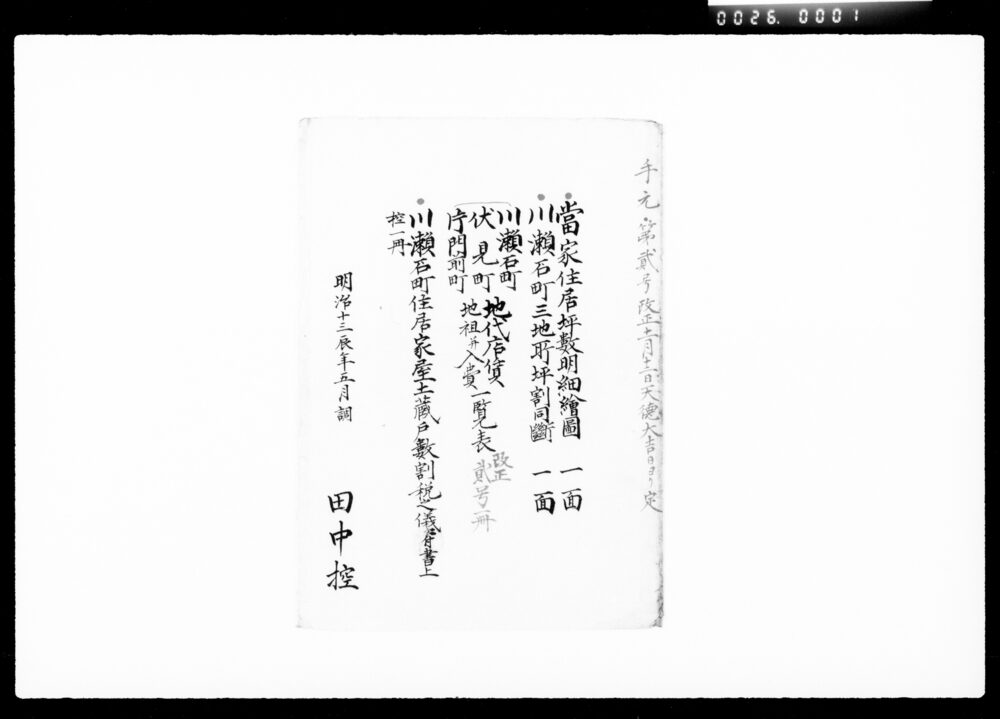 0026. 0001
手元第貳号改正十二月十二日天徳大吉日ヨリ定
當家住居坪數明細繪圖 一面
川瀬石町三地所坪割同斷 一面
川瀬石町
伏見町
庁門前町
地代店賃
地租并入費
一覧表
改正
貳号一冊
川瀬石町住居家屋土蔵戸數割税之儀ニ付書上
控一冊
明治十三辰年五月調
田中控